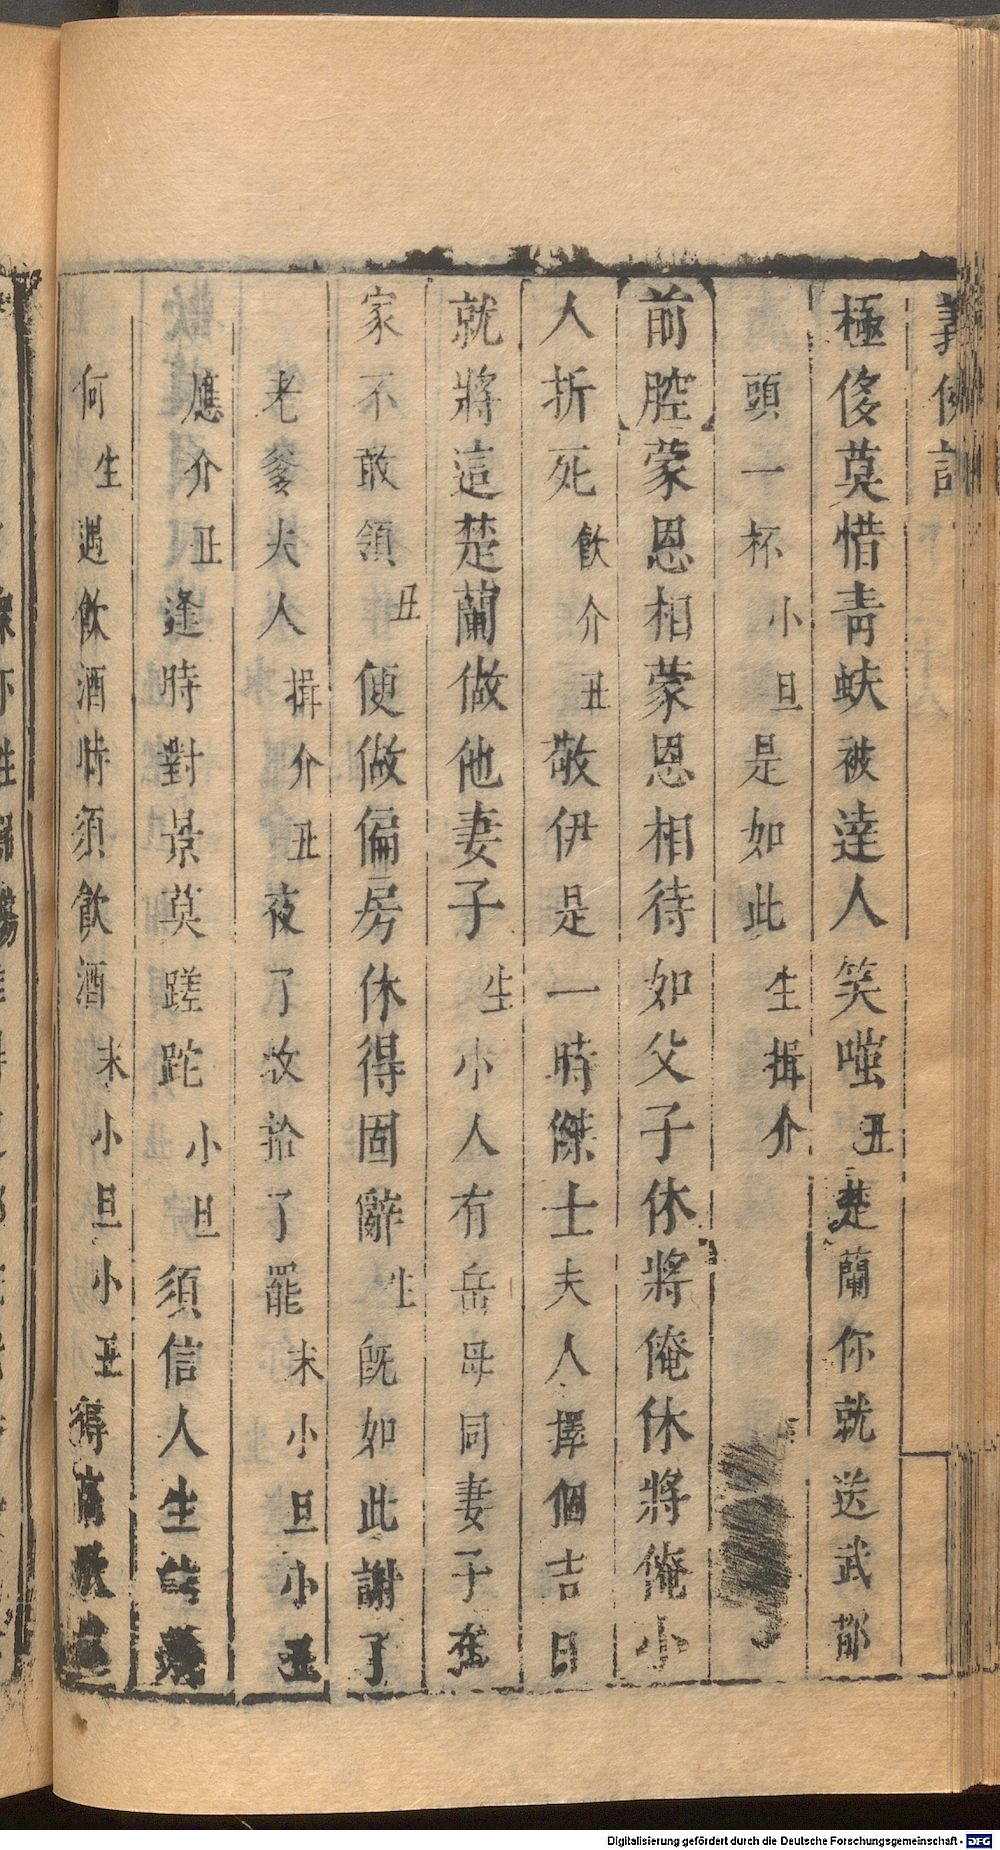 義俠記
極侈莫惜青蚨被達人笑嗤丑楚蘭你就送武都
頭一杯小旦是如此生揖介
前腔蒙恩相蒙恩相待如父子休將俺休將俺小
人折死飲介丑敬伊是一時傑士夫人擇個吉日
就將這楚蘭做他妻子生小人有岳母同妻子在
家不敢領丑便做偏房休得固辭生既如此謝了
老爹夫人揖介丑夜了收拾了罷末小旦小丑
應介丑逢時對景莫蹉跎小旦須信人生
何生遇飲酒時須飲酒末小旦小丑得高歌
Digitalisierung gefördert durch die Deutsche Forschungsgemeinschaft - DFG